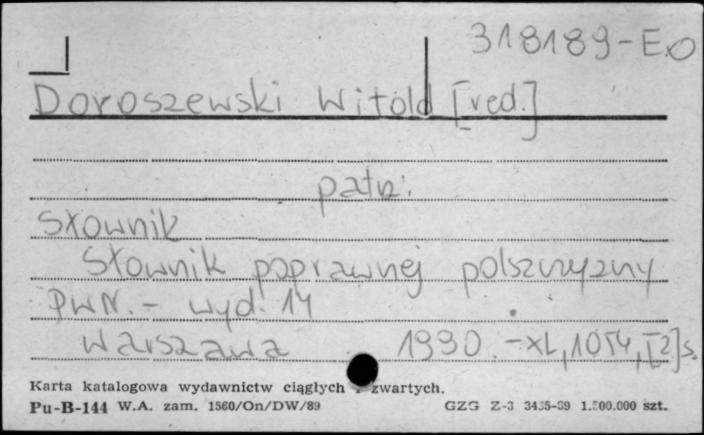 318189-E.O
Doroszewski Witold [red.]
patrz:
Słownik
Słownik poprawnej polszczyzny
PWN. - wyd. 14
Warszawa 1990. - XL, 1054, [2] s.
Karta katalogowa wydawnictw ciągłych i zwartych.
Pu-B-144 W.A. zam. 1560/On/DW/89 GZG Z-3 3435-89 1.500.000 szt.